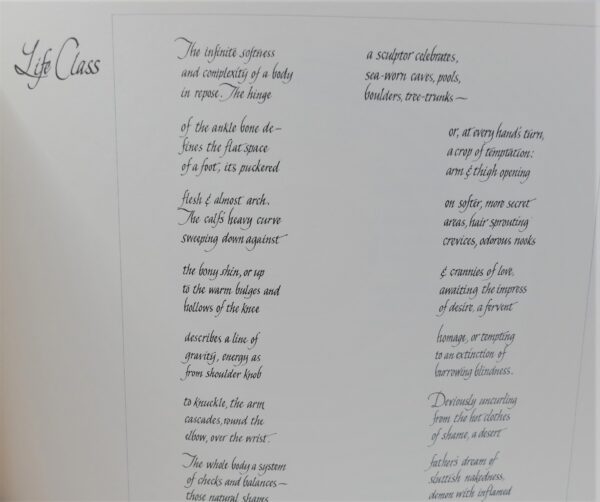 Life Class
The infinite softness
and complexity of a body
in repose. The hinge
of the ankle bone de-
fines the flat space
of a foot, its puckered
flesh & almost arch.
The calf's heavy curve
sweeping down against
the bony shin, or up
to the warm bulges and
hollows of the knee
describes a line of
gravity, energy as
from shoulder knob
to knuckle, the arm
cascades, round the
elbow, over the wrist.
The whole body a system
of checks and balances—
those natural shapes
a sculptor celebrates,
sea-worn caves, pools,
boulders, tree-trunks —
or, at every hand's turn,
a crop of temptation:
arm & thigh opening
on softer, more secret
areas, hair sprouting
crevices, odorous nooks
& crannies of love,
awaiting the impress
of desire, a fervent
homage, or tempting
to an extinction of
burrowing blindness.
Deviously uncurling
from the hot clothes
of shame, a desert
father's dream of
sluttish nakedness,
demon with inflamed